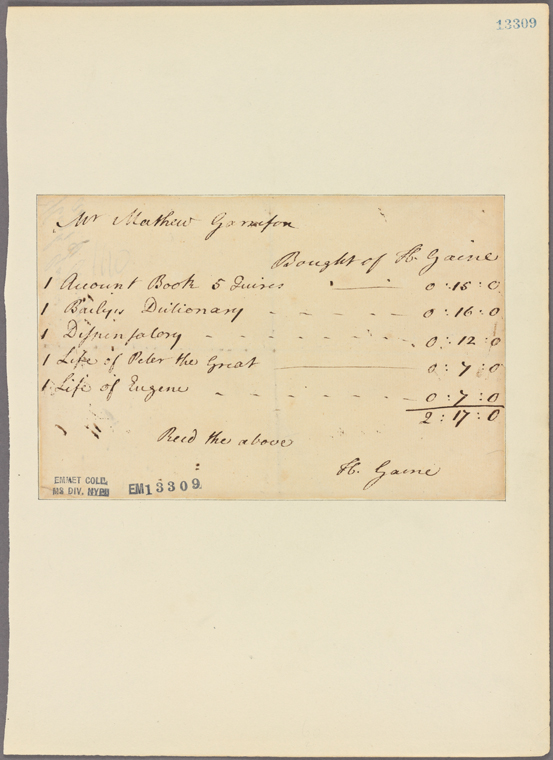 13309
Mr Mathew
Bought of H. Gaine
1 Account Book 5 Quires 0:15:0
1 Bailys Dictionary 0:16:0
1 Dispensatory 0:12:0
1 Life of Peter the Great 0:7:0
1 Life of Eugene 0:7:0
2:17:0
Recd the above
H. Gaine
EMMET COLL.
MS DIV. NYPL
EM13309